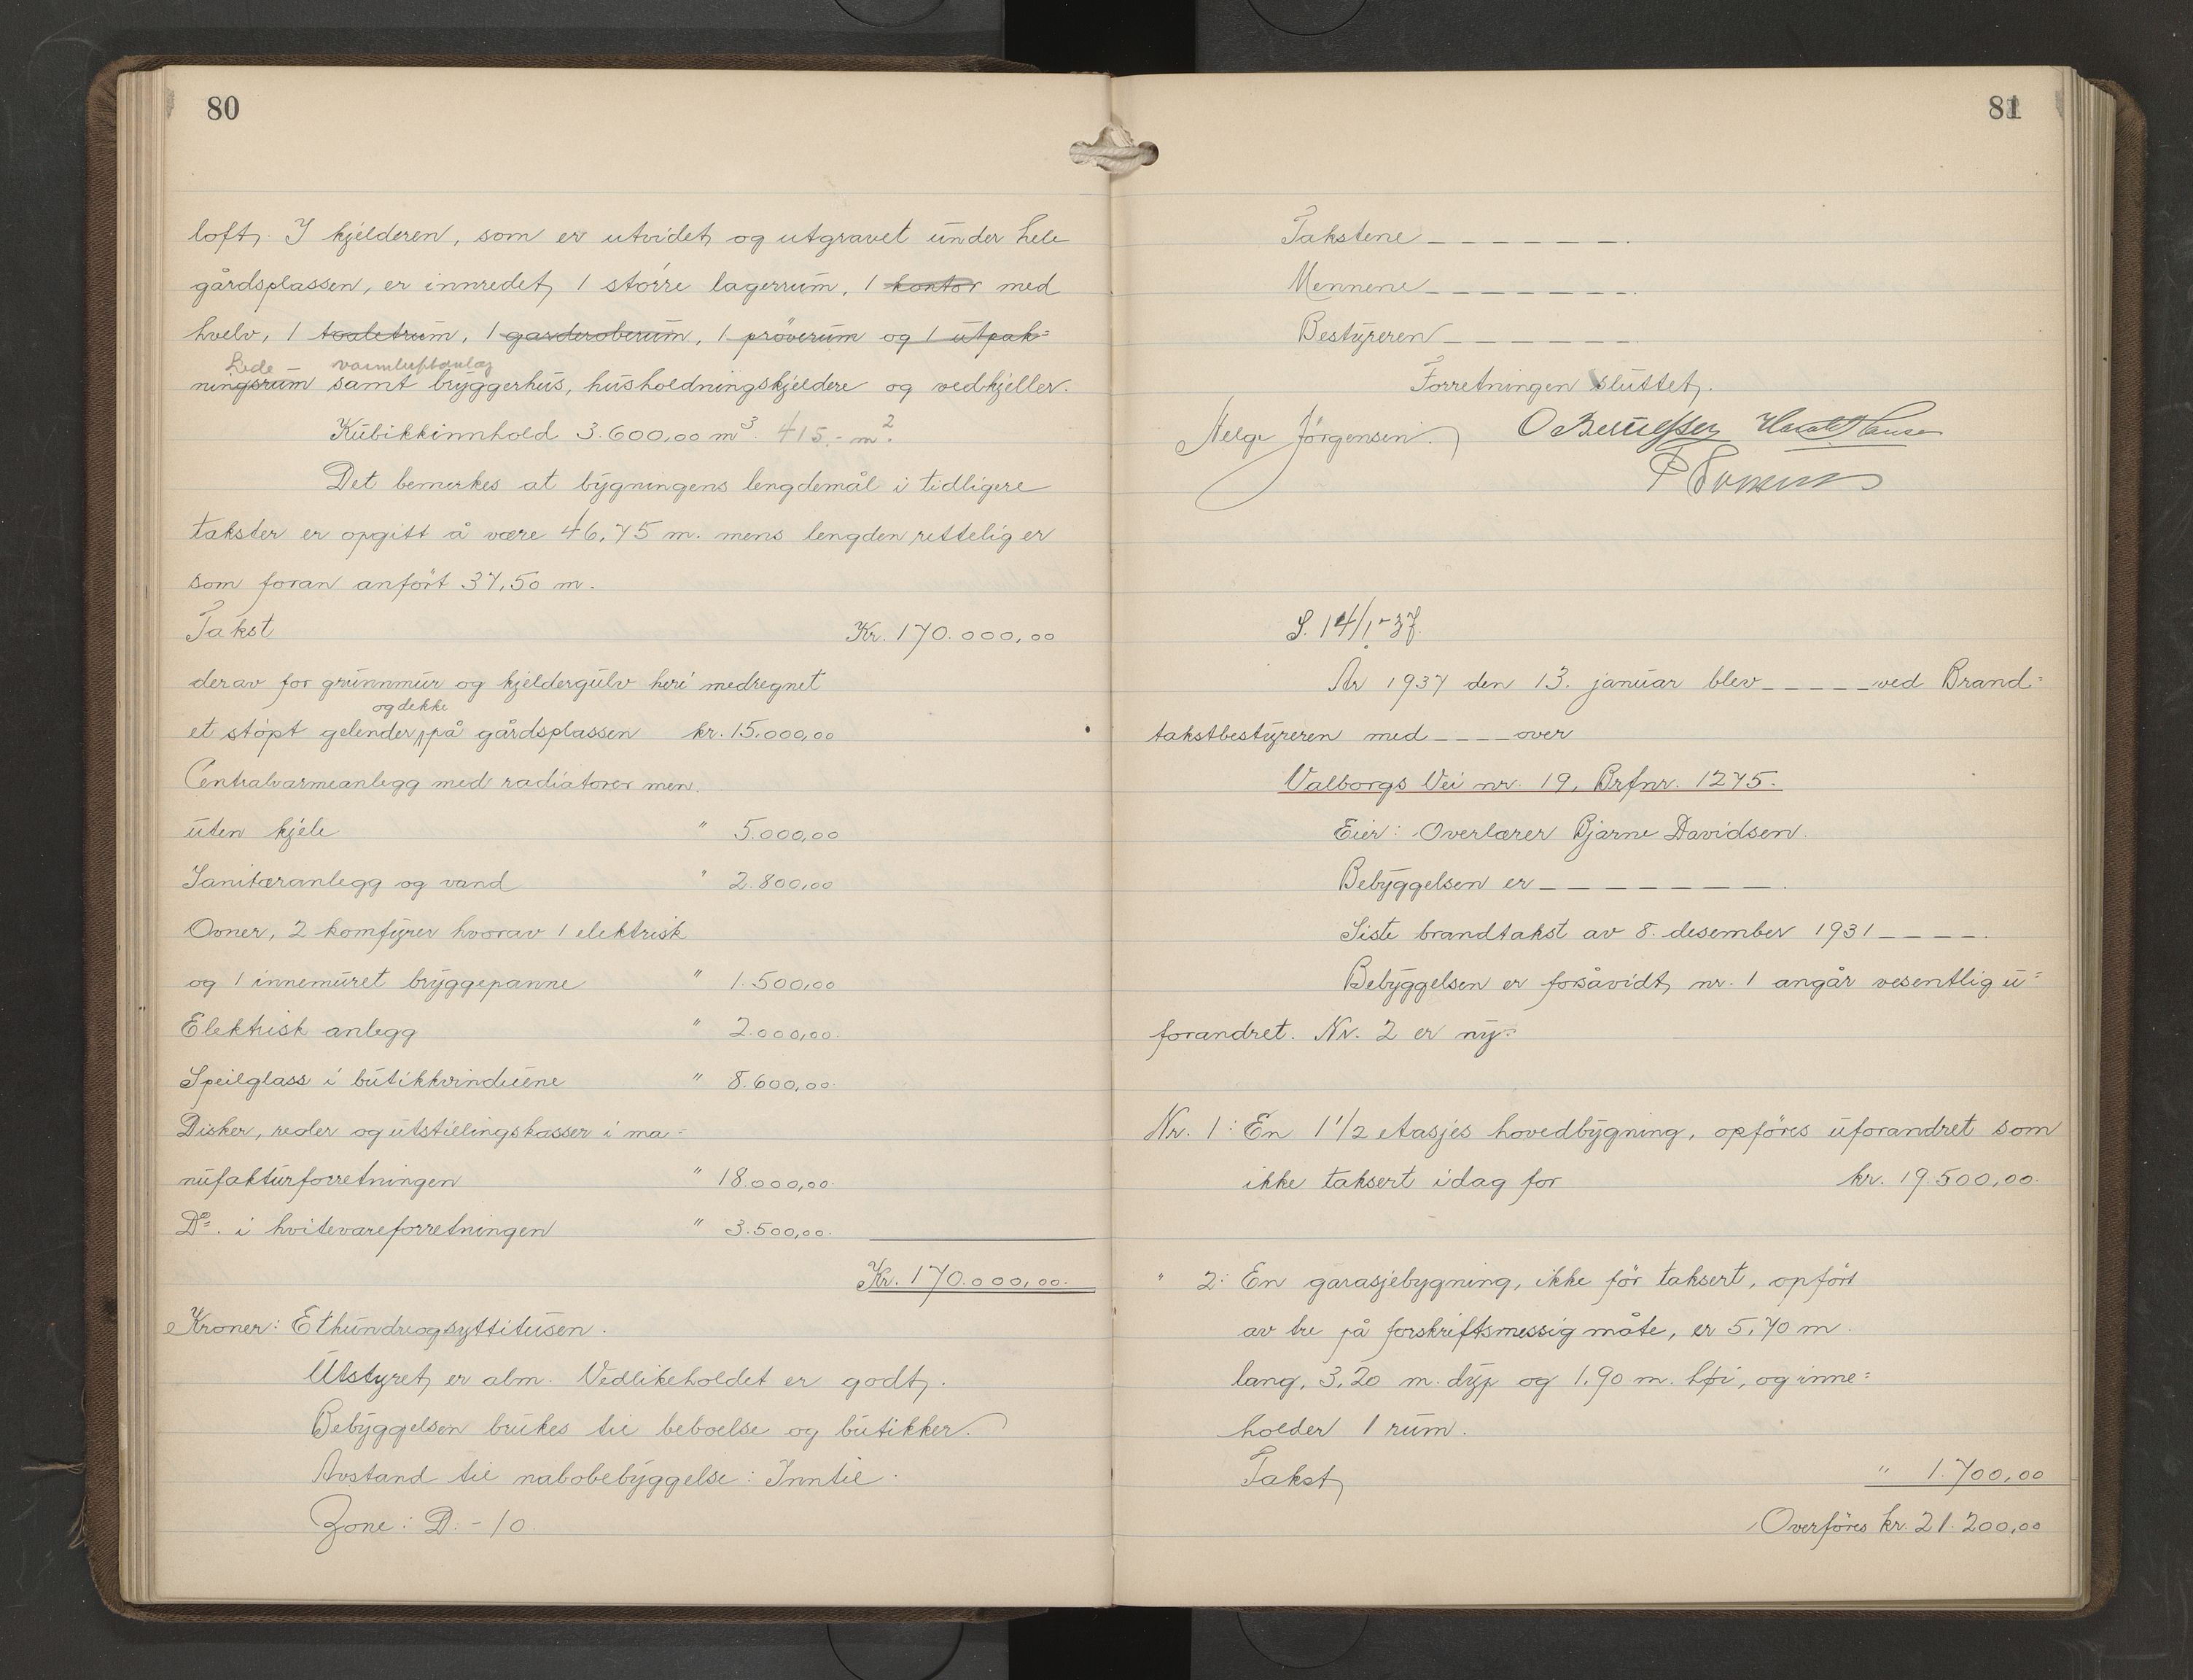 80
loft. I kjelderen, som er utvidet og utgravet under hele
gårdsplassen, er innredet 1 större lagerrum, 1 kontor med
hvelv, 1 toaletrum, 1 garderoberum, 1 pröverum og 1 utpak=
varmluftanlæg
ningsrum samt bryggerhus, husholdningskjeldere og vedkjeller.
Kubikkinnhold 3.600,00 m³. 415,- m².
Det bemerkes at bygningens lengdemål i tidligere
takster er opgitt å være 46,75 m. mens lengden rettelig er
som foran anfört 37,50 m.
Takst Kr. 170.000,00
derav for grunnmur og kjeldergulv heri medregnet
og dekke
et støpt gelender, på gårdsplassen kr. 15.000,00
Centralvarmeanlegg med radiatorer men
uten kjele " 5.000,00
Sanitæranlegg og vand " 2.800,00
Ovner, 2 komfyrer hvorav 1 elektrisk
og 1 innemuret bryggepanne " 1.500,00
Elektrisk anlegg " 2.000,00.
Speilglass i butikkvinduene " 8.600,00.
Disker, reoler og utstillingskasser i ma=
nufakturforretningen " 18.000,00.
Do. i hvitevareforretningen " 3.500,00.
Kr. 170.000,00.
Kroner: Ethundreogsyttitusen.
Utstyret er alm. Vedlikeholdet er godt.
Bebyggelsen brukes til beboelse og butikker.
Avstand til nabobebyggelse: Inntil.
Zone: D. - 10.
81
Takstene _ _ _ _ _ _ _.
Mennene _ _ _ _ _ _ _.
Bestyreren _ _ _ _ _ _ _.
Forretningen sluttet.
Helge Jörgensen. Harald Hansen
S. 14/1-37.
År 1937 den 13. januar blev _ _ _ _ _ ved Brand=
takstbestyreren med _ _ _ _ over
Valborgs Vei nr. 19, Brfnr. 1275.
Eier: Overlærer Bjarne Davidsen.
Bebyggelsen er _ _ _ _ _ _ _ _.
Siste brandtakst av 8. desember 1931 _ _ _ _.
Bebyggelsen er forsåvidt nr. 1 angår vesentlig u=
forandret. Nr. 2 er ny:
Nr. 1: En 1 1/2 etasjes hovedbygning, opföres uforandret som
ikke taksert idag for kr. 19.500,00.
" 2: En garasjebygning, ikke för taksert, opfört
av tre på forskriftsmessig måte, er 5,70 m.
lang, 3,20 m. dyp og 1,90 m. høi, og inne=
holder 1 rum.
Takst " 1.700,00
Overföres kr. 21.200,00